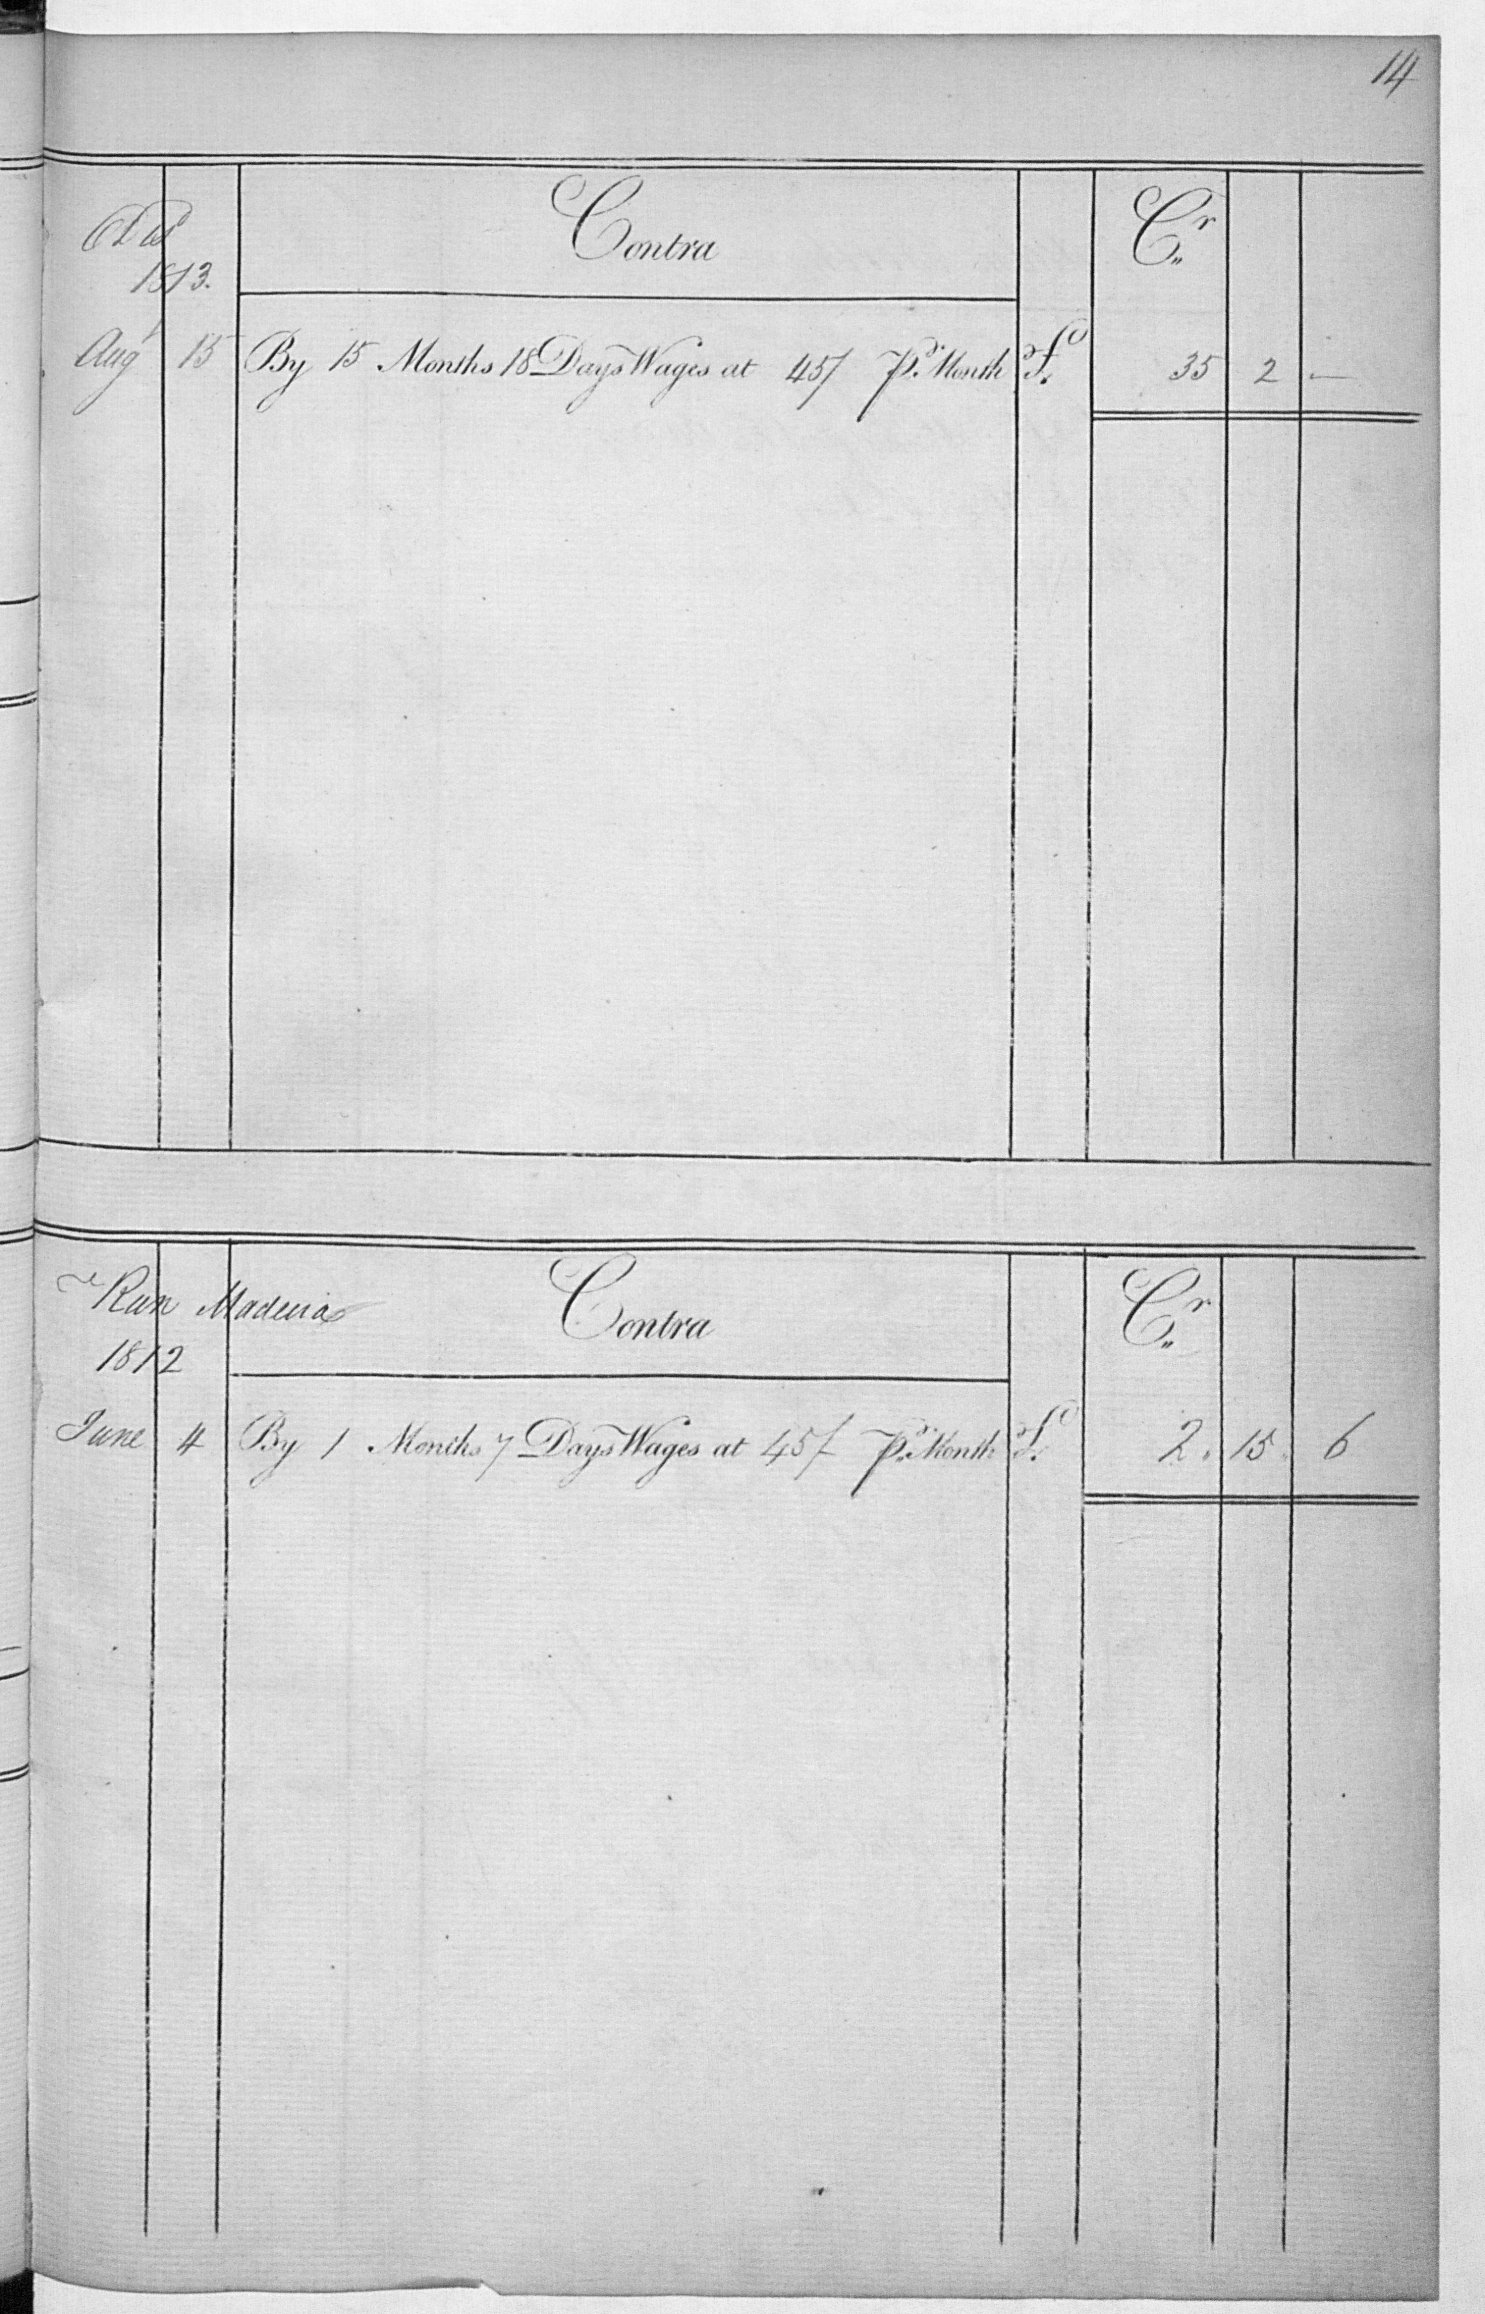 14
Contra Cr
1813.
Augt 15 By 15 Months 18 Days Wages at 45/ Pr. Month £ 35 2 —
Run Madeira Contra Cr
1812
June 4 By 1 Months 7 Days Wages at 45/ Pr. Month £ 2. 15. 6